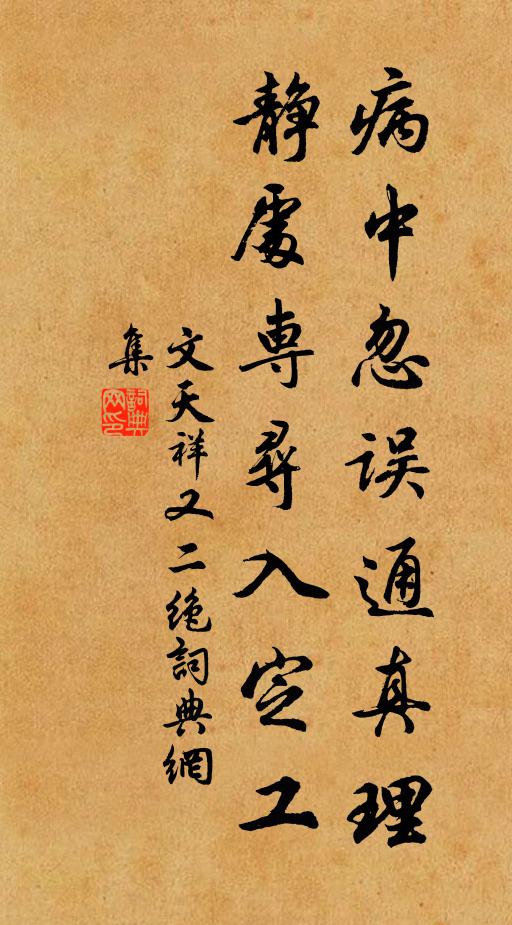 病中忽误通真理
静處専尋入定工
文天祥又二绝詞典網
集
詞典網印